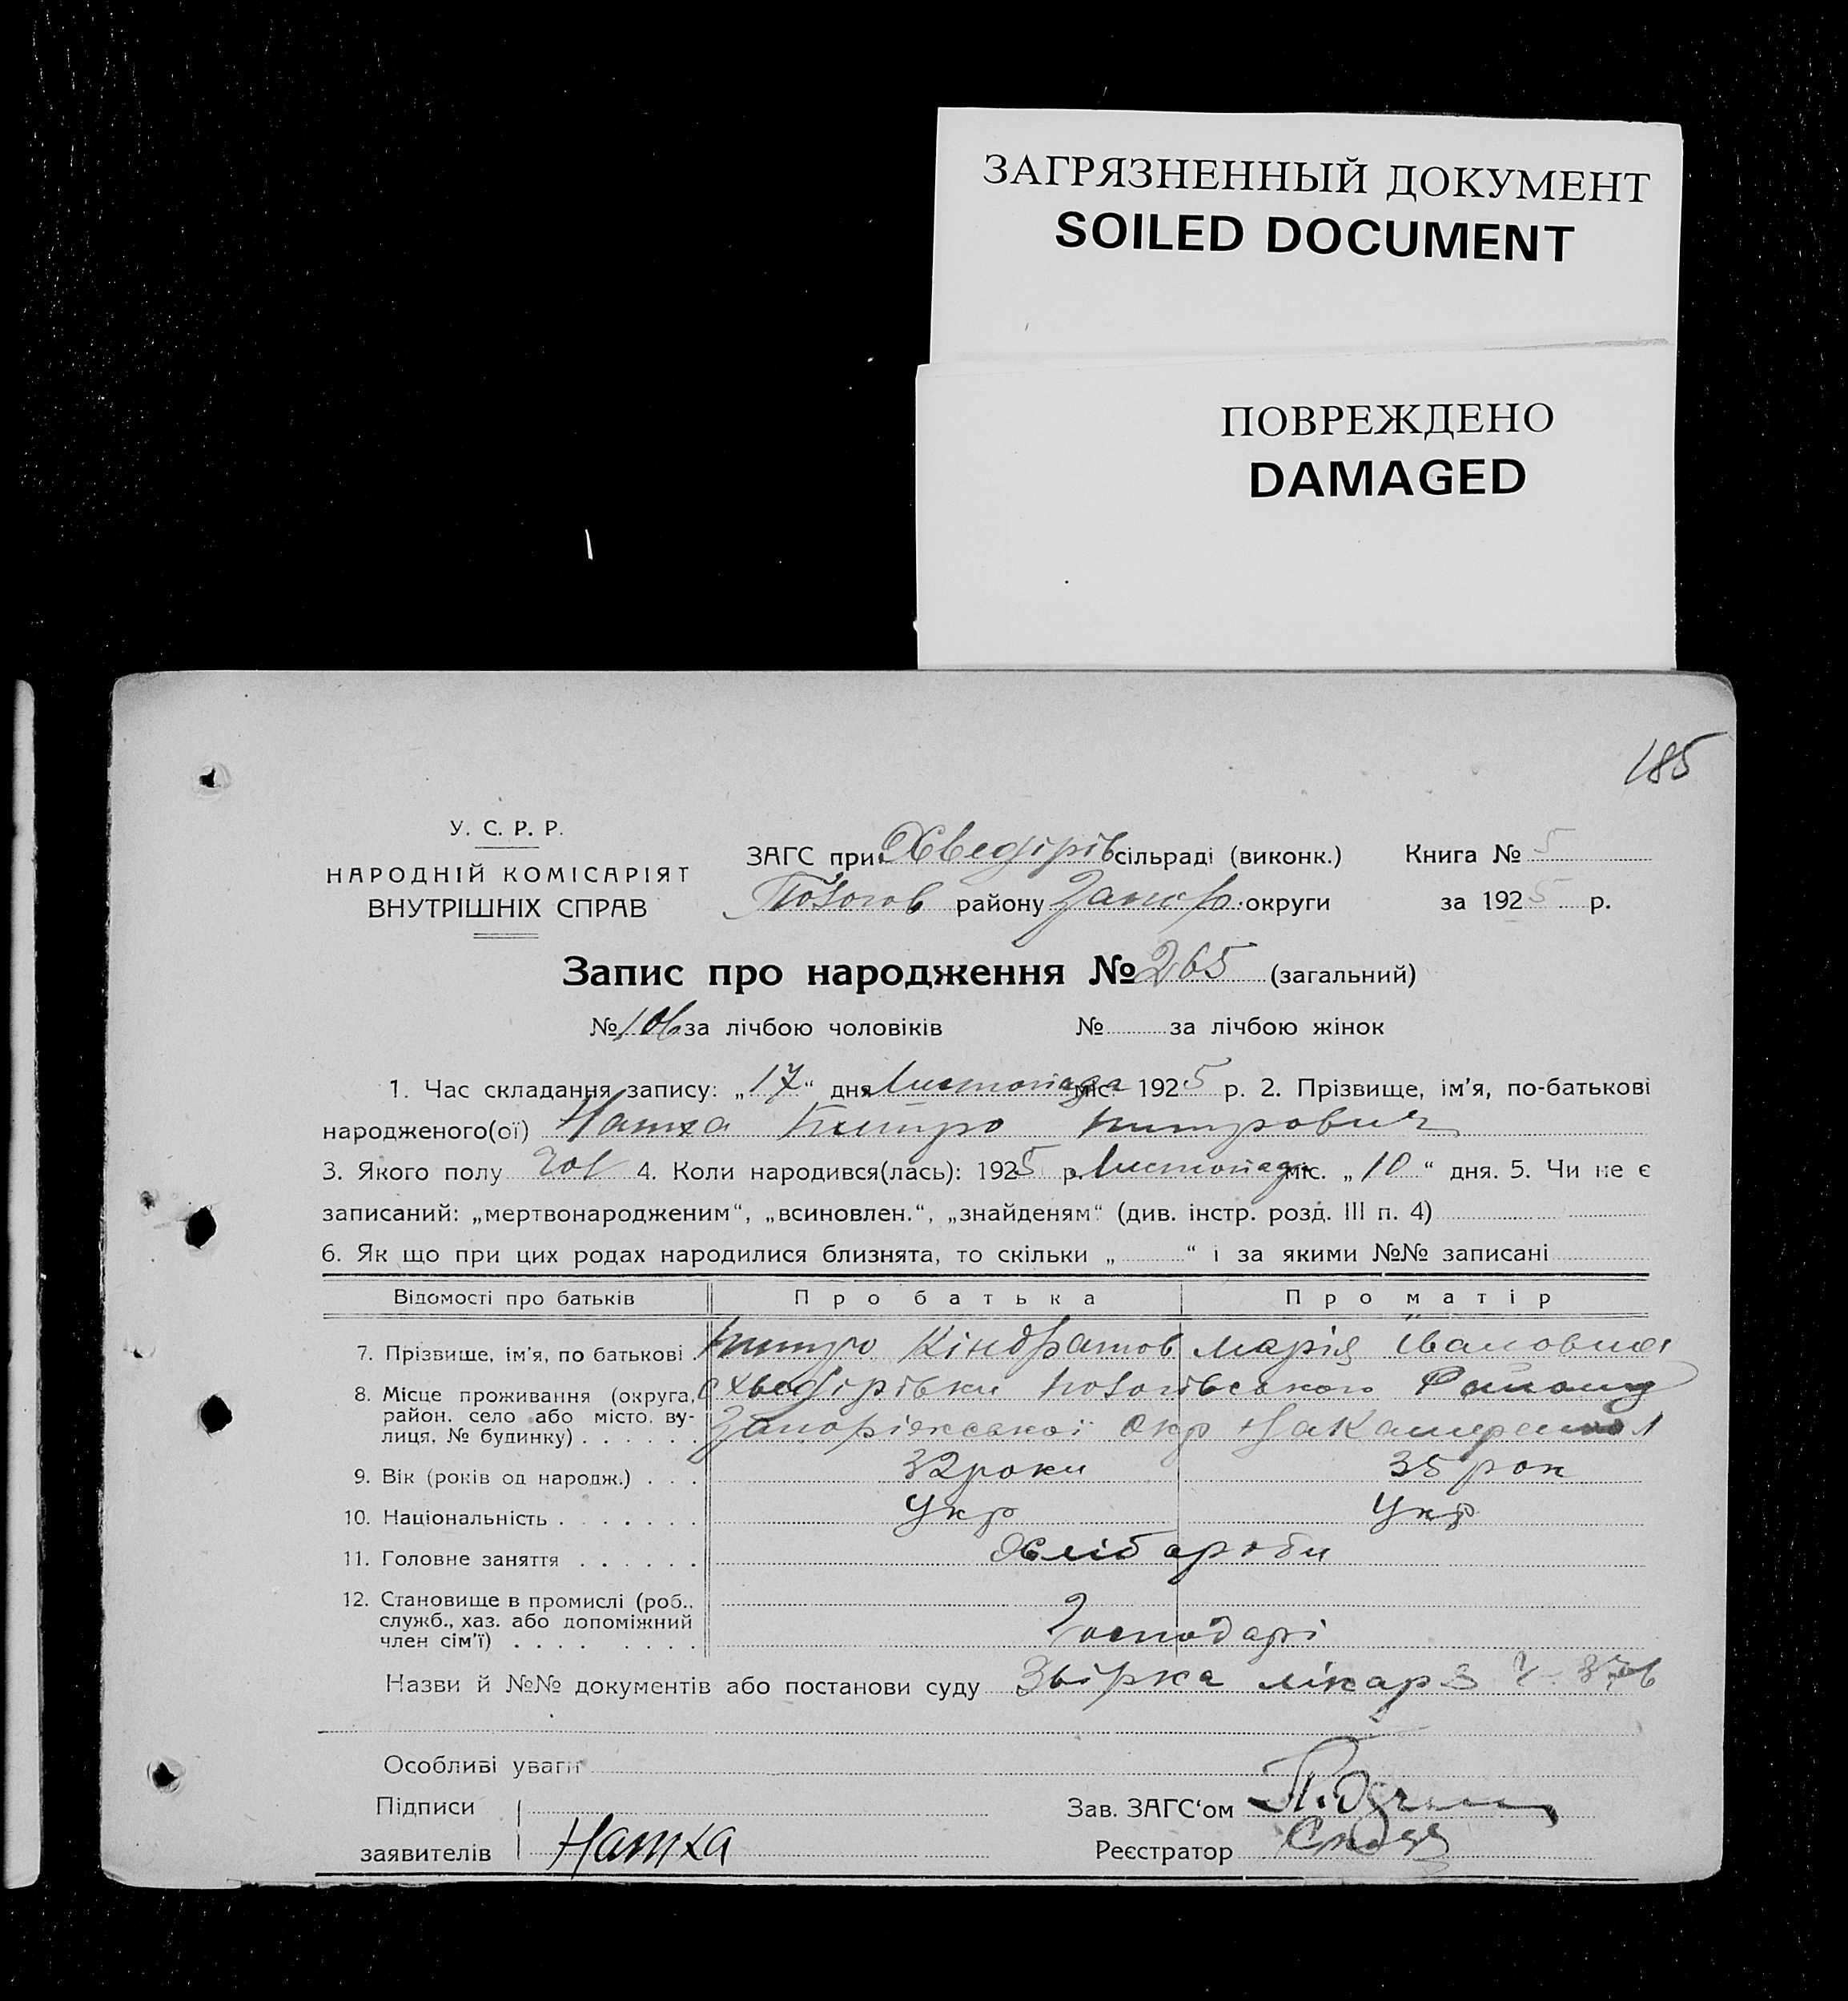 ЗАГРЯЗНЕННЫЙ ДОКУМЕНТ
SOILED DOCUMENT
ПОВРЕЖДЕНО
DAMAGED
185
У. С. Р. Р.
НАРОДНІЙ КОМІСАРІЯТ
ВНУТРІШНІХ СПРАВ
ЗАГС при Хведірів сільраді (виконк.) Книга № 5
Пологов району Запор. округи за 1925 р.
Запис про народження № 265 (загальний)
№ 106 за лічбою чоловіків № за лічбою жінок
1. Час складання запису: „17“ дня Листопада міс. 1925 р. 2. Прізвище, ім'я, по-батькові
народженого(ої) Натха
3. Якого полу чол 4. Коли народився(лась): 1925 р. Листопада міс. „10“ дня. 5. Чи не є
записаний: „мертвонародженим“, „всиновлен.“, „знайденям“ (див. інстр. розд. III п. 4)
6. Як що при цих родах народилися близнята, то скільки „ “ і за якими №№ записані
Відомості про батьків Про батька Про матір
7. Прізвише, ім'я, по батькові Кіндратов Марія Івановна
8. Місце проживання (округа, Хведірівки Пологівського Району
район, село або місто, ву-
лиця, № будинку) Запоріжської Окр
9. Вік (років од народж.) 32 роки 35 рок
10. Національність Укр Укр
11. Головне заняття Хлібороби
12. Становище в промислі (роб.,
служб., хаз. або допоміжний
член сім'ї) Господарі
Назви й №№ документів або постанови суду Звірка лікаря
Особливі уваги
Підписи
заявителів Натха
Зав. ЗАГС'ом
Реєстратор